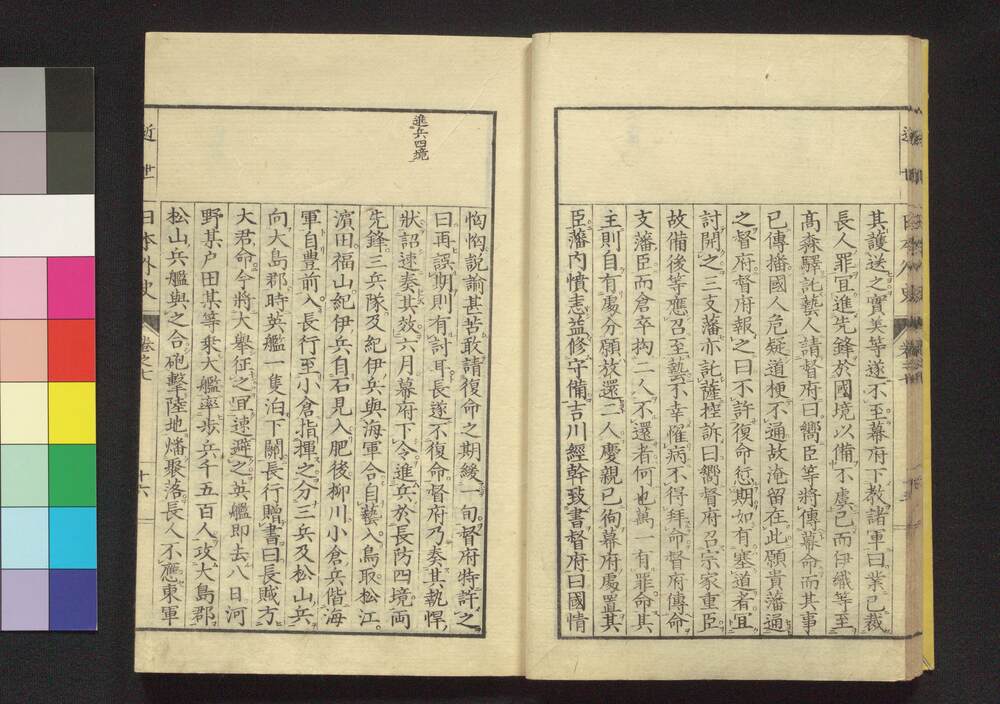 其護送之實美等遂不至幕府下教諸軍曰業已裁
長人罪宜進先鋒於國境以備不虞已而伊織等至
髙森驛託藝人請督府曰嚮臣等將傳幕命而其事
已傳播國人危疑道梗不通故淹留在此願貴藩通
之督府督府報之曰不許復命愆期如有塞道者宜
討開之三支藩亦託薩控訴曰嚮督府召宗家重臣
故備後等應召至藝不幸罹病不得拜命督府傳命
支藩臣而倉卒拘二人不還者何也萬一有罪命其
主則自有處分願放還二人慶親已徇幕府處置其
臣藩内憤恚益修守備吉川經幹致書督府曰國情
進兵四境
恟恟説諭甚苦敢請復命之期緩一旬督府特許之
曰再誤期則有討耳長遂不復命督府乃奏其執悍
狀詔速奏其效六月幕府下令進兵於長防四境両
先鋒三兵隊及紀伊兵與海軍合自藝入鳥取松江
濱田福山紀伊兵自石見入肥後柳川小倉兵偕海
軍自豊前入長行至小倉指揮之分三兵及松山兵
向大島郡時英艦一隻泊下關長行贈書曰長賊方
大君命今將大擧征之宜速避之英艦即去八日河
野某户田某等乘大艦率歩兵千五百人攻大島郡
松山兵艦與之合砲擊陸地燔聚落長人不應東軍
近世日本外史
卷之七
十六